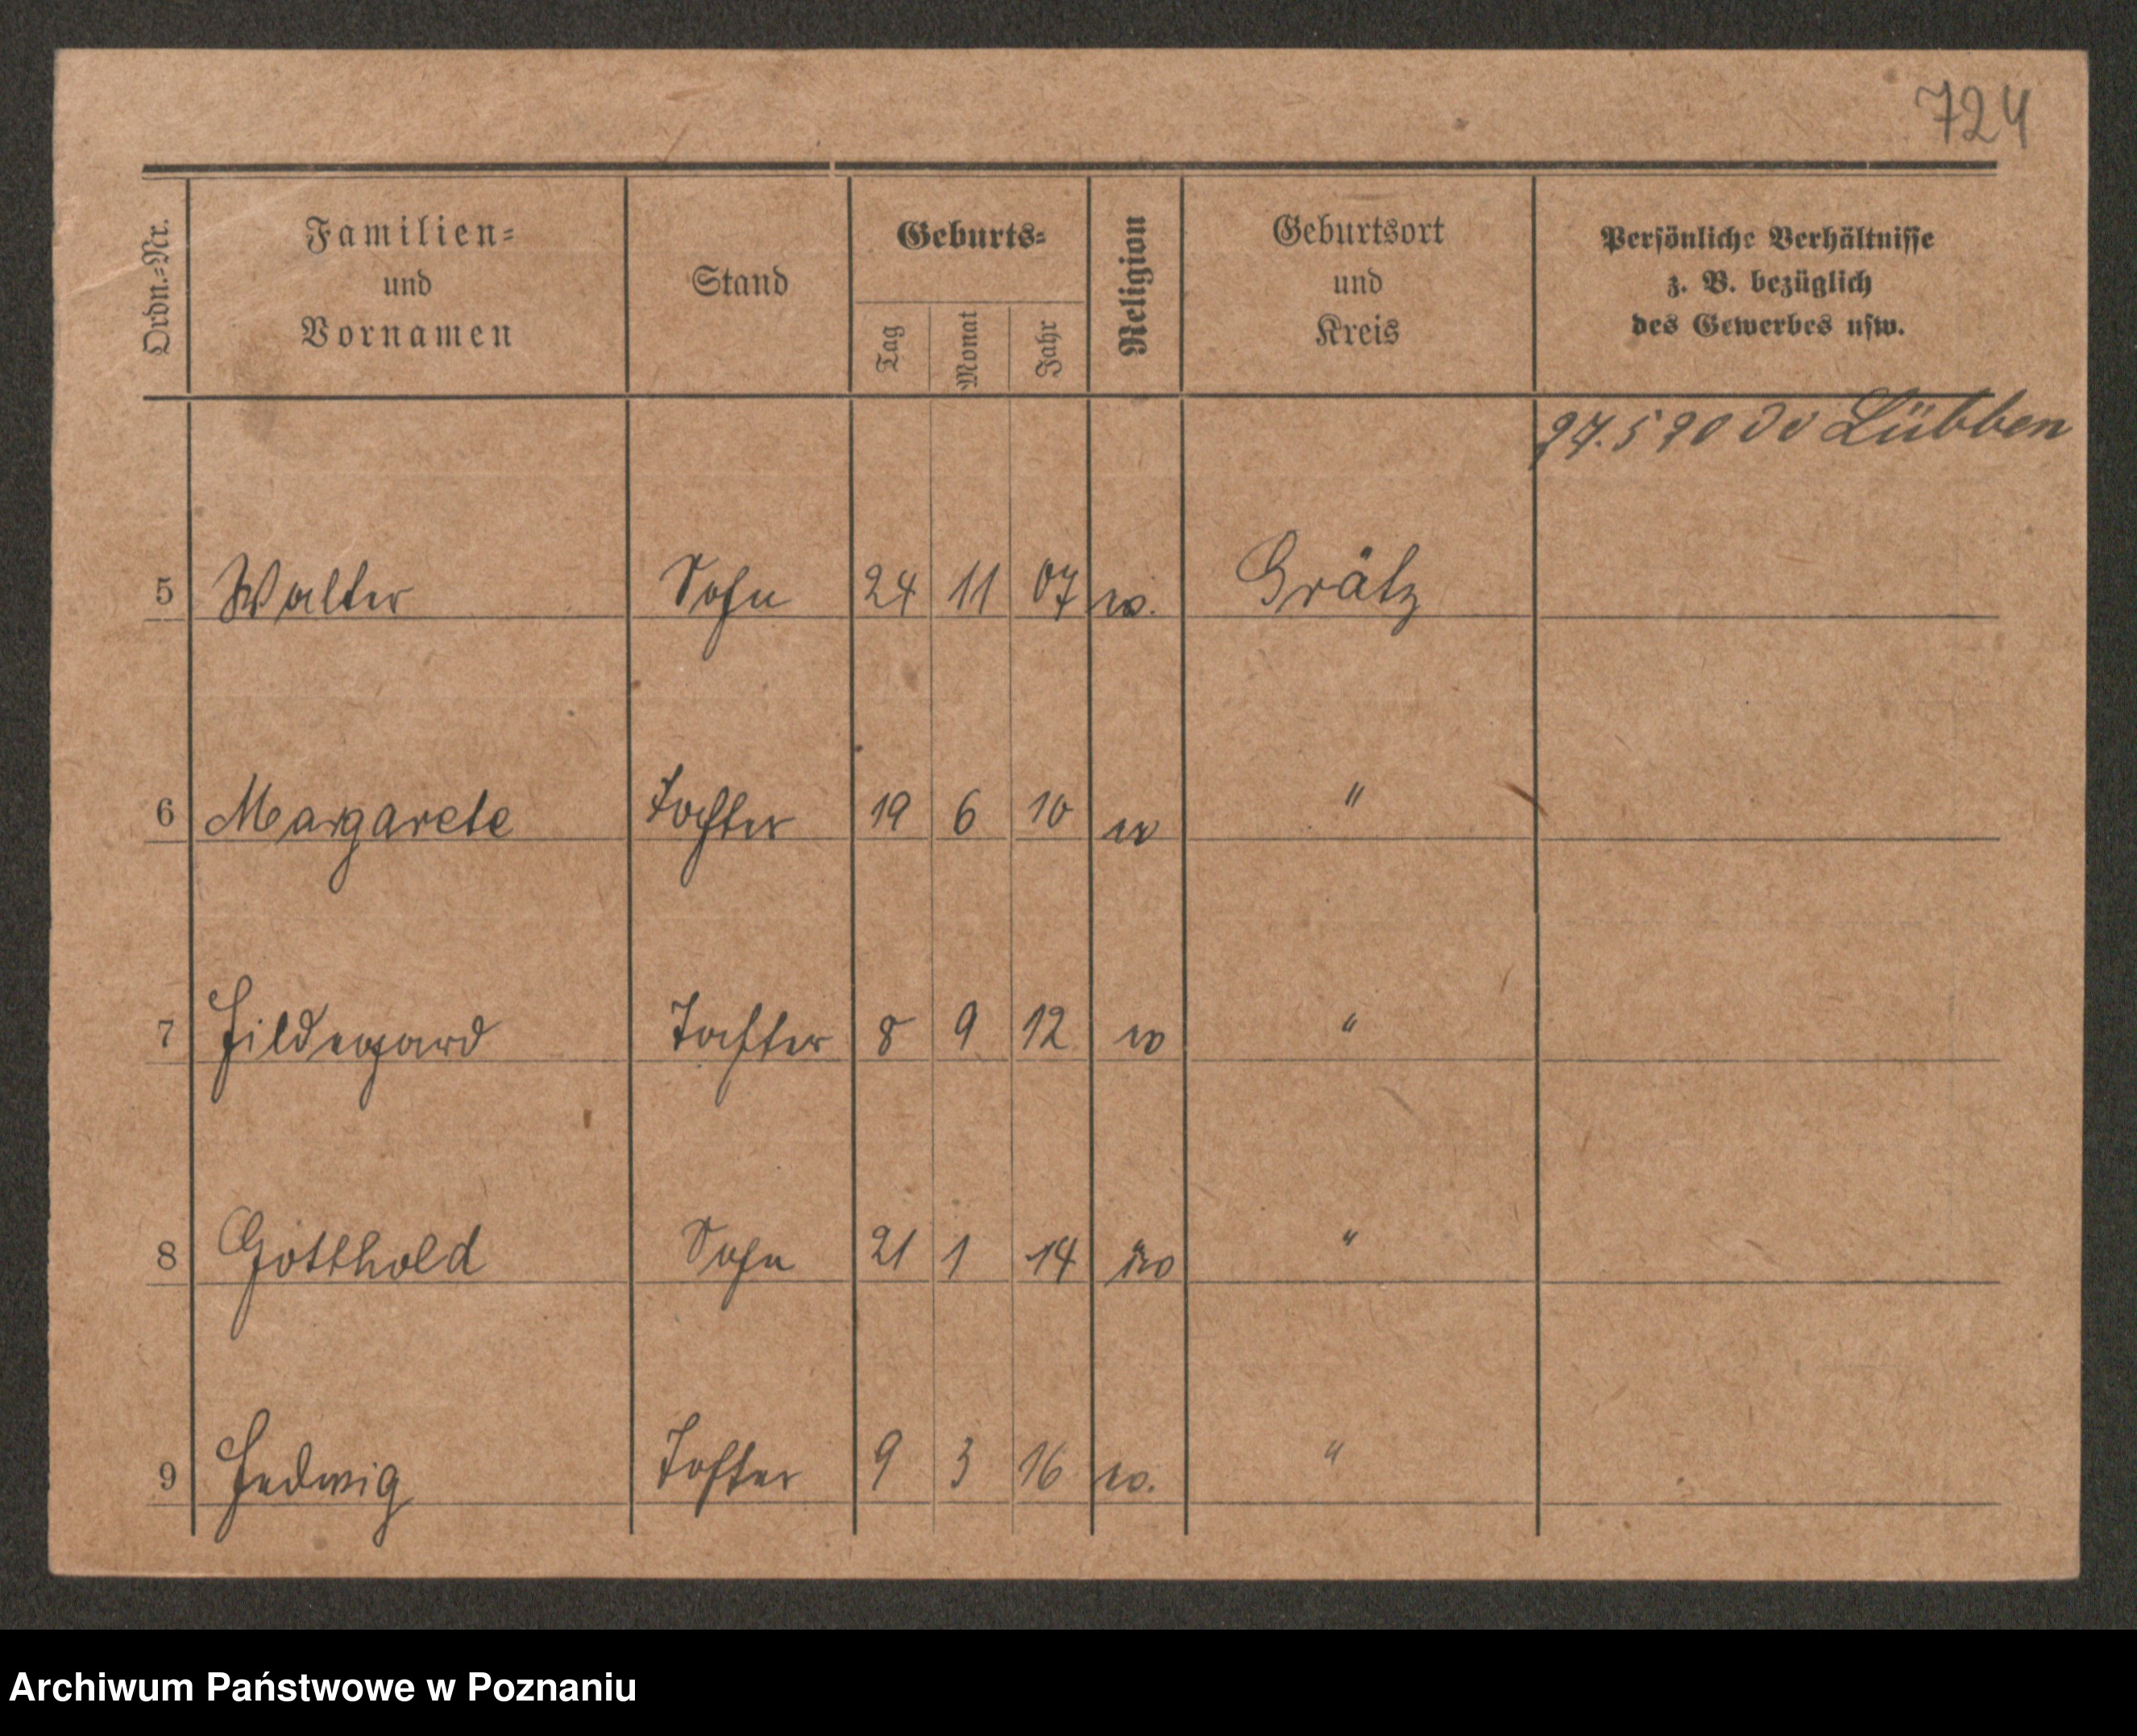 724
Ordn.-Nr.
Familien-
und
Vornamen
Stand
Geburts-
Tag
Monat
Jahr
Religion
Geburtsort
und
Kreis
Persönliche Verhältnisse
z. B. bezüglich
des Gewerbes usw.
Lübben
5 Walter Sohn 24 11 07 ev. Grätz
6 Margarete Tochter 19 6 10 ev "
7 Hildegard Tochter 8 9 12 ev "
8 Gotthold Sohn 21 1 14 ev "
9 Hedwig Tochter 9 3 16 ev. "
Archiwum Państwowe w Poznaniu